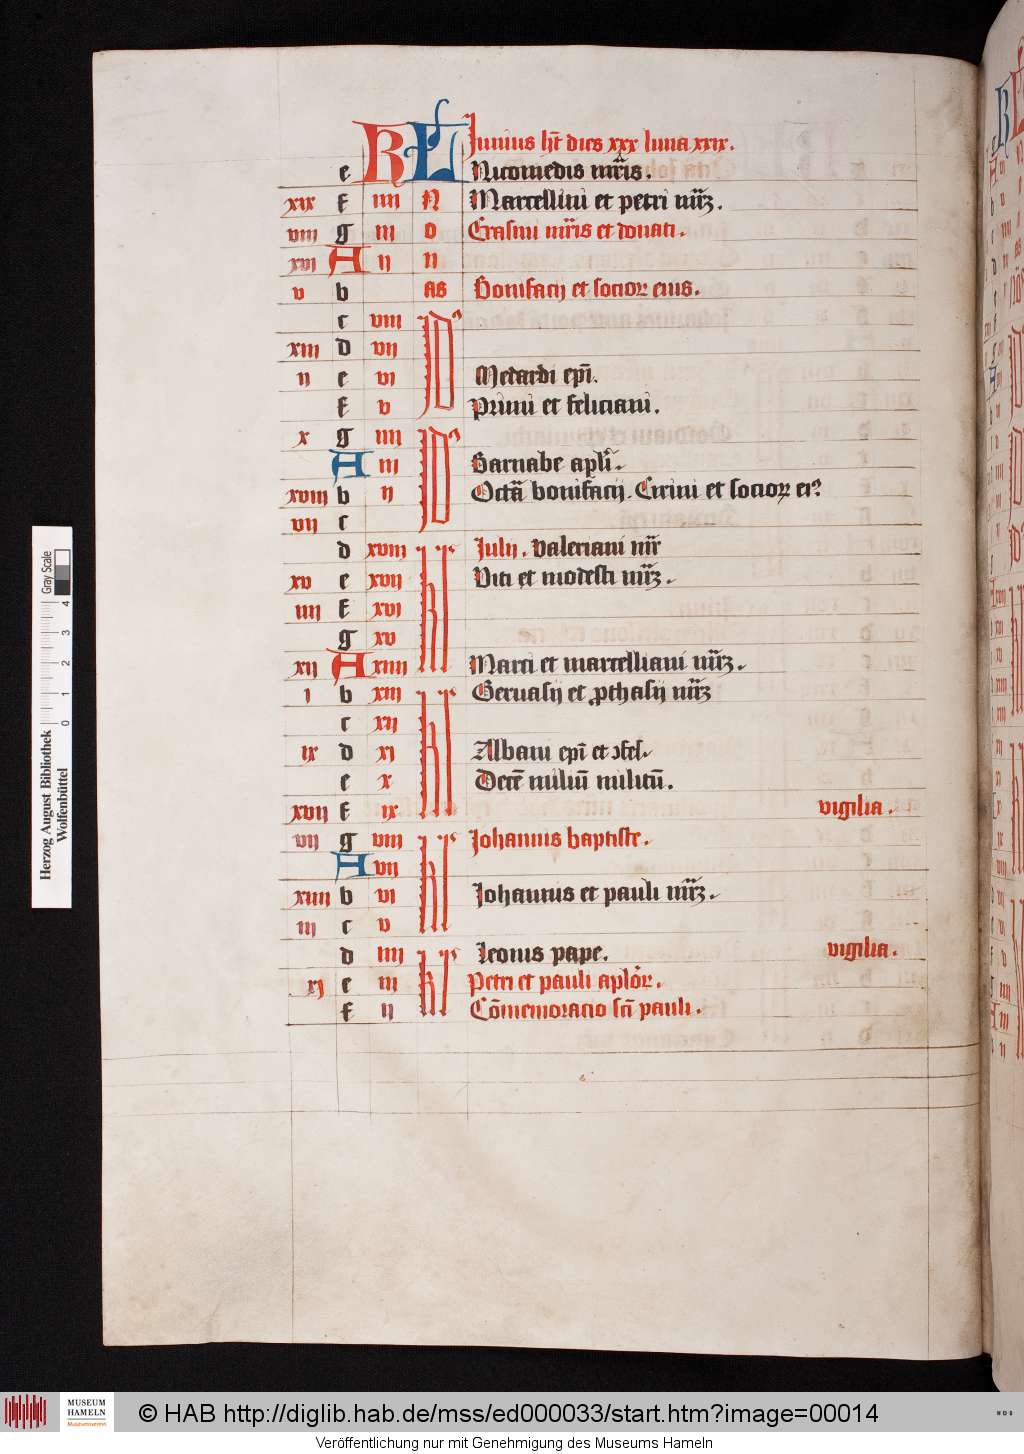 KL Junius ht dies xxx luna xxix.
e Nicomedis mris.
xix f iiii N Marcellini et petri mr̄m.
viii g iii o Erasmi mris et donati.
xvi A ii n
v b as Bonifacij et socior eius.
c viii Id9
xiii d vii
ii e vi Medardi epi.
f v Primi et feliciani.
x g iiii Id9
A iii Barnabe apli.
xviii b ii Octa bonifacij. Cirini et socior ei9
vii c
d xviii kl Julij. Valeriani mr
xv e xvii Viti et modesti mr̄m.
iiii f xvi
g xv
xii A xiiii Marci et marcelliani mr̄m.
i b xiii kl Geruasij et pthasij mr̄m
c xii
ix d xi Albani epi et ɔfes.
e x Dece miliu militu.
xvii f ix vigilia.
vii g viii kl Johannis baptiste.
A vii
xiiii b vi Johannis et pauli mr̄m.
iii c v
d iiii kl Leonis pape. vigilia.
xi e iii Petri et pauli aplor.
f ii Cōmemoracio sci pauli.
Herzog August Bibliothek
Wolfenbüttel
0 1 2 3 4
Gray Scale
MUSEUM
HAMELN
Museumsverein
© HAB http://diglib.hab.de/mss/ed000033/start.htm?image=00014
Veröffentlichung nur mit Genehmigung des Museums Hameln